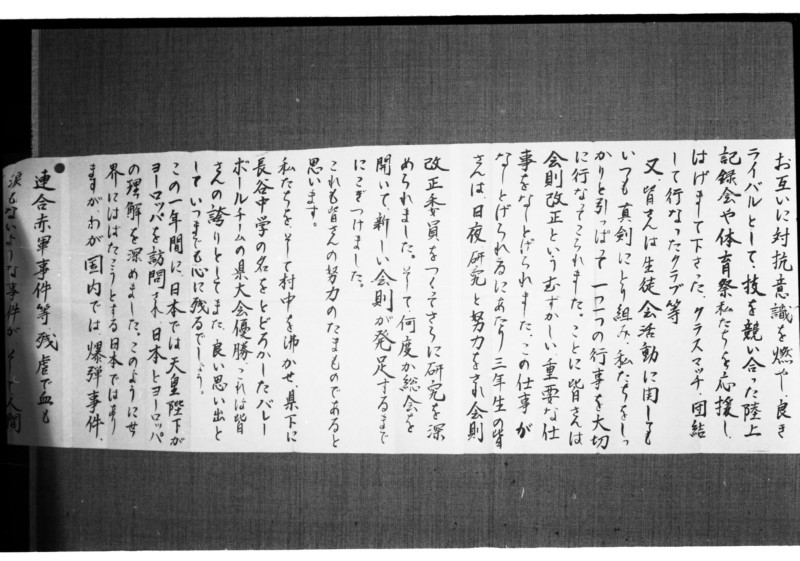 お互いに対抗意識を燃やし、良き
ライバルとして、技を競い合った陸上
記録会や体育祭、私たちを応援し、
はげまして下さった、クラスマッチ、団結
して行なったクラブ等
又、皆さんは生徒会活動に関しても
いつも真剣にとり組み、私たちをしっ
かりと引っぱって一つ一つの行事を大切
に行なってこられました。ことに皆さんは
会則改正というむずかしい重要な仕
事をなしとげられました、この仕事が
なしとげられるにあたり三年生の皆
さんは、日夜研究と努力をされ会則
改正委員をつくってさらに研究を深
められました。そして何度か総会を
開いて、新しい会則が発足するまで
にこぎつけました。
これも皆さんの努力のたまものであると
思います。
私たちを、そして村中を沸かせ、県下に
長谷中学の名をとどろかしたバレー
ボールチームの県大会優勝、これは皆
さんの誇りとしてまた、良い思い出と
していつまでも心に残るでしょう。
この一年間に、日本では天皇陛下が
ヨーロッパを訪問され日本とヨーロッパ
の理解を深めました。このように世
界にはばたこうとする日本ではあり
ますがわが国内では爆弾事件、
連合赤軍事件等残虐で血も
涙もないような事件が、そして人間